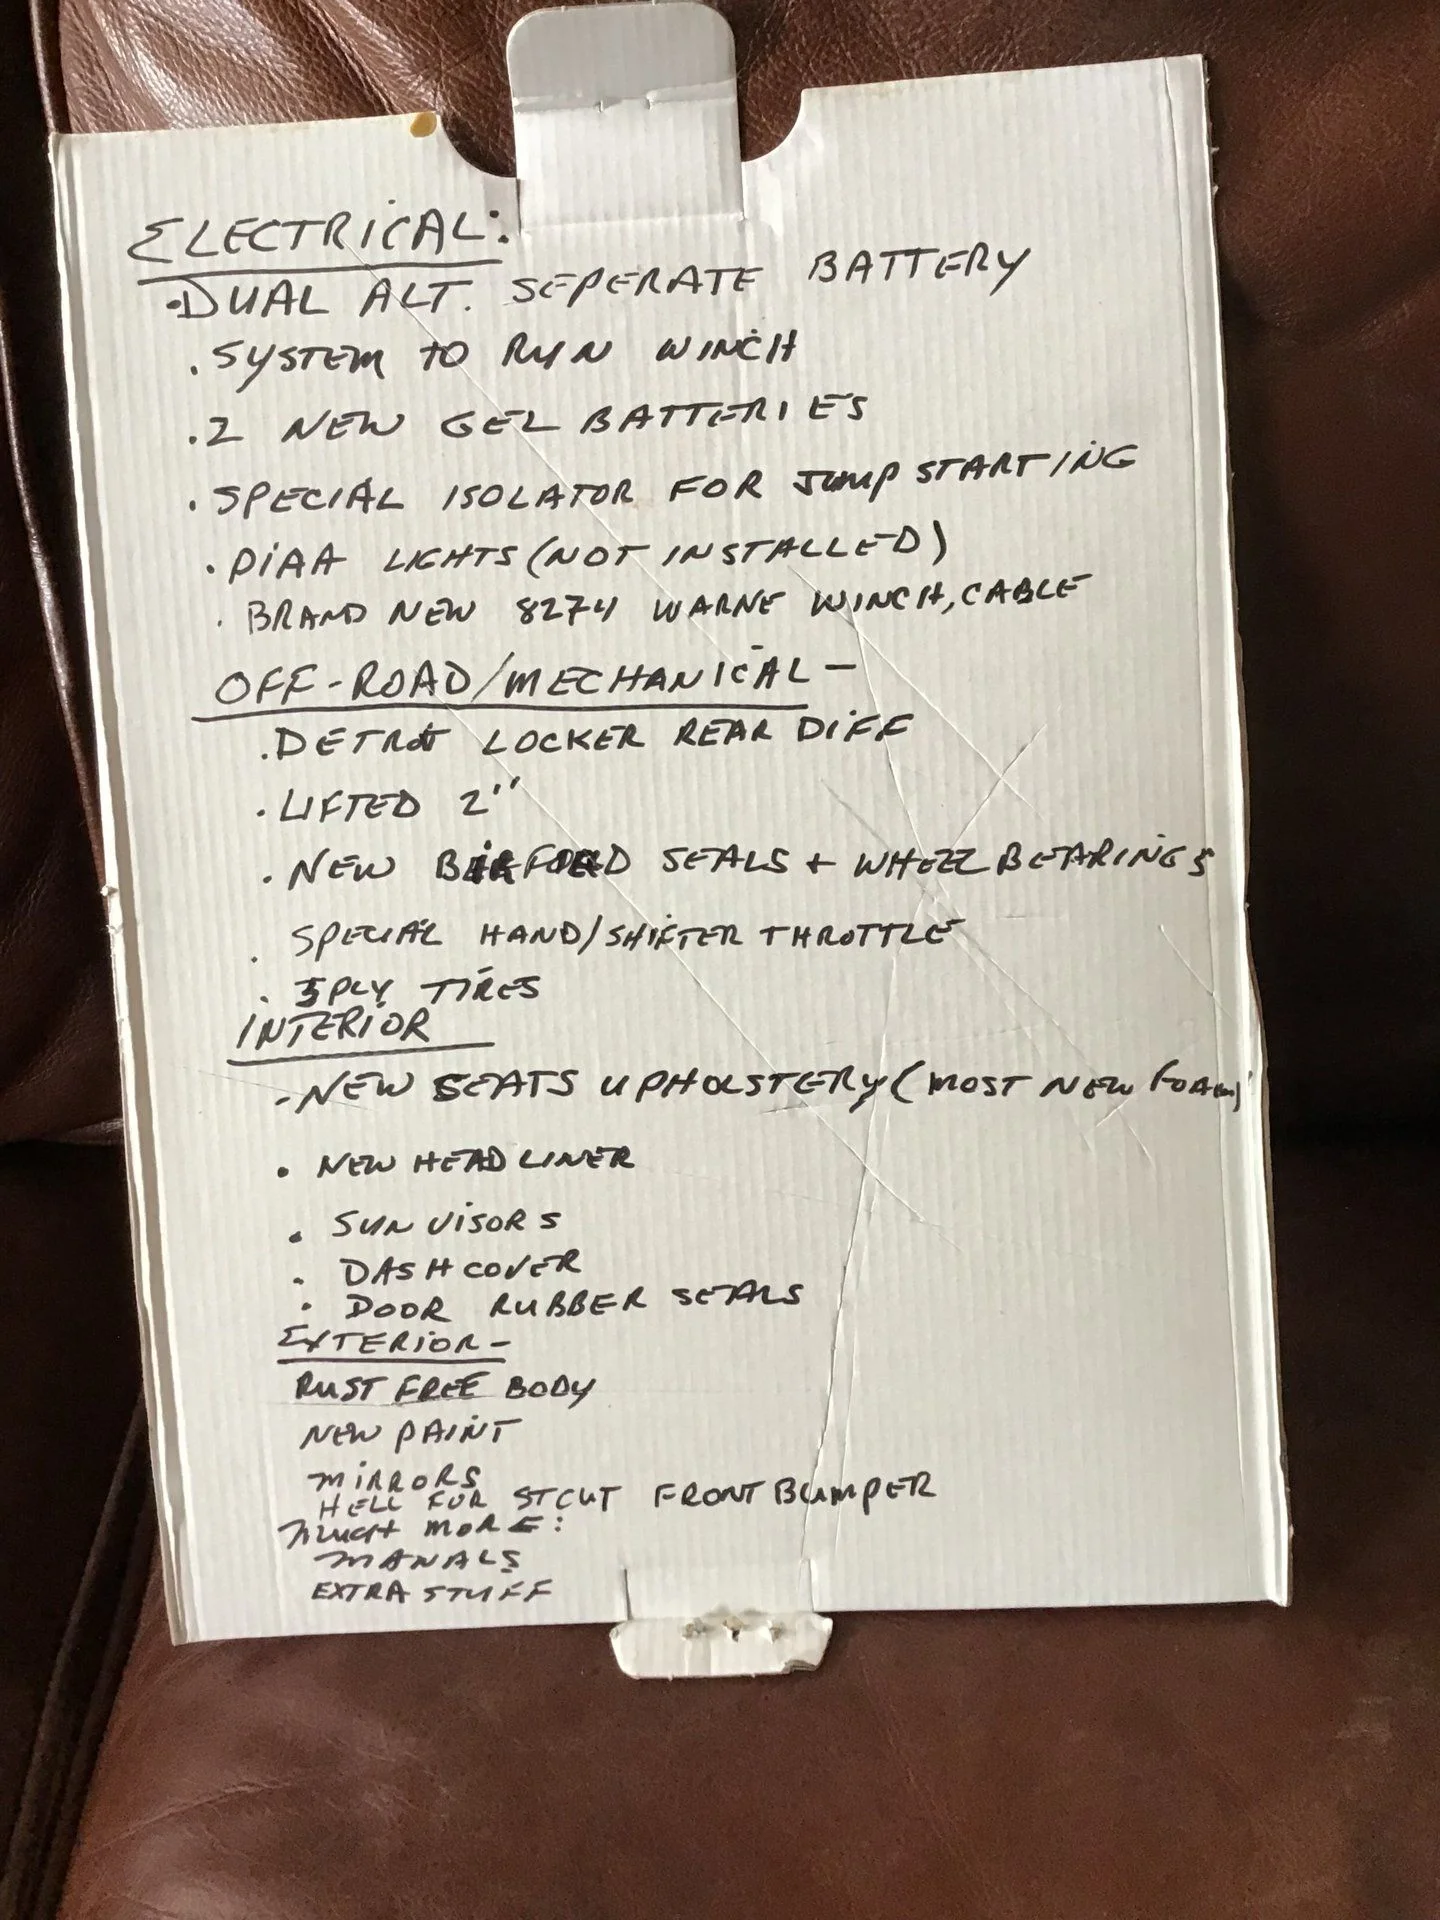 ELECTRICAL:
• DUAL ALT. SEPERATE BATTERY
• SYSTEM TO RUN WINCH
• 2 NEW GEL BATTERIES
• SPECIAL ISOLATOR FOR JUMP STARTING
• PIAA LIGHTS (NOT INSTALLED)
• BRAND NEW 8274 WARNE WINCH, CABLE
OFF-ROAD/MECHANICAL -
• DETROIT LOCKER REAR DIFF
• LIFTED 2"
• NEW BIRFORD SEALS + WHEEL BEARINGS
• SPECIAL HAND/SHIFTER THROTTLE
• PLY TIRES
INTERIOR
- NEW SEATS UPHOLSTERY (MOST NEW FOAM)
• NEW HEADLINER
• SUN VISORS
• DASH COVER
• DOOR RUBBER SEALS
EXTERIOR -
RUST FREE BODY
NEW PAINT
MIRRORS
HELL FOR STOUT FRONT BUMPER
MUCH MORE:
MANALS
EXTRA STUFF